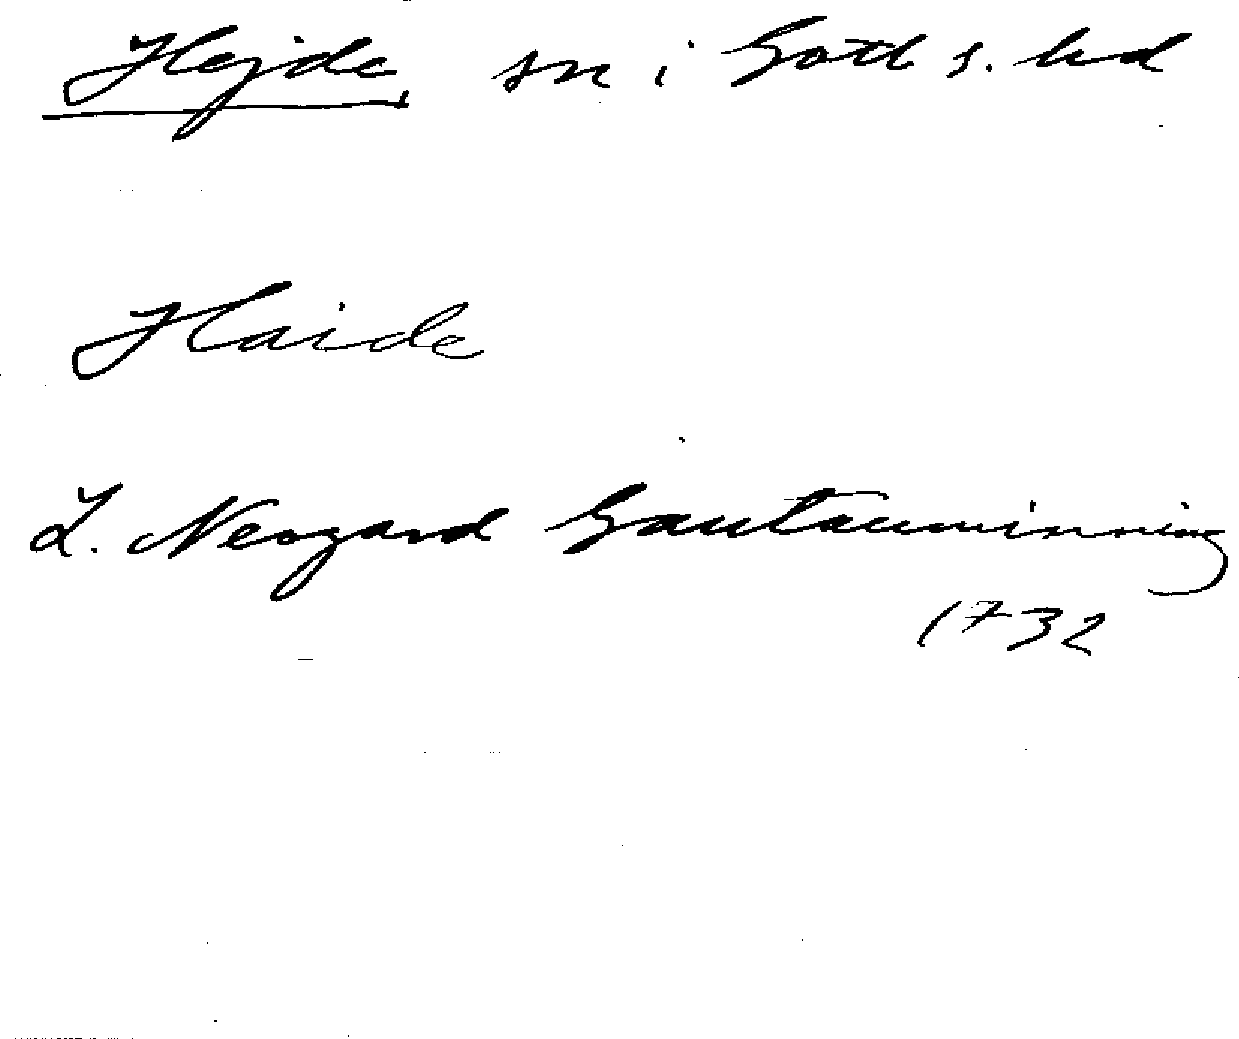 Hejde sn i Gotl s. hd
Haide
L. Neogard Gautauminning
1732